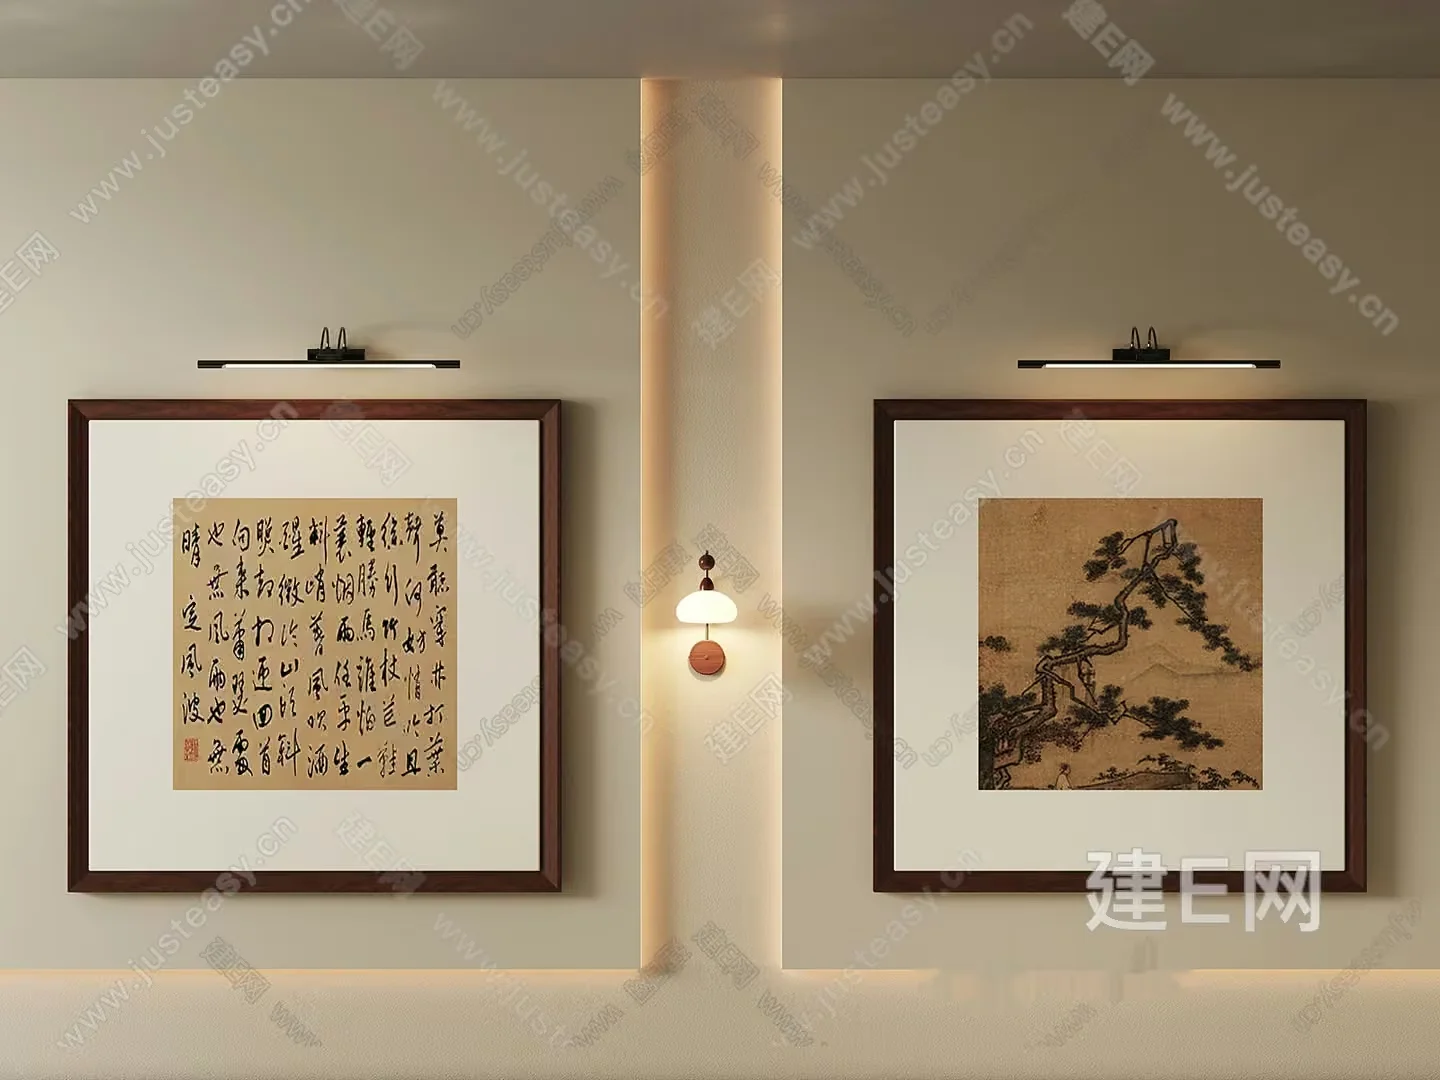 莫聽穿林打葉
聲何妨吟且
徐行竹杖芒鞋
輕勝馬誰怕一
蓑烟雨任平生
料峭春風吹酒
醒微冷山頭斜
照却相迎回首
向來蕭瑟處
也無風雨也無
晴 定風波
建E网
www.justeasy.cn